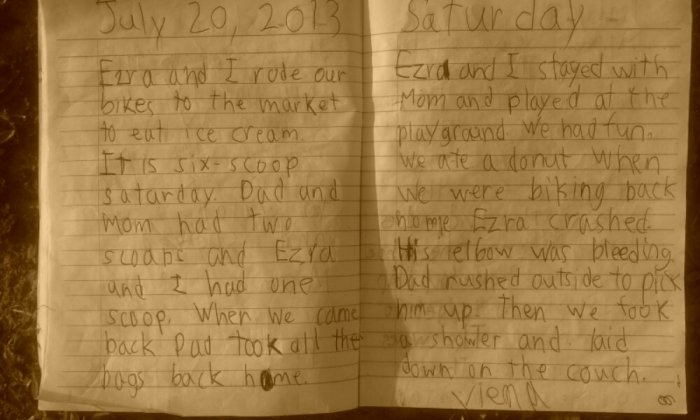 July 20, 2013
Ezra and I rode our
bikes to the market
to eat ice cream.
It is six-scoop
saturday. Dad and
Mom had two
scoops and Ezra
and I had one
scoop. When we came
back Dad took all the
bags back home.
Saturday
Ezra and I stayed with
Mom and played at the
playground. We had fun.
We ate a donut. When
we were biking back
home Ezra crashed.
His elbow was bleeding.
Dad rushed outside to pick
him up. Then we took
a shower and laid
down on the couch.
Viena